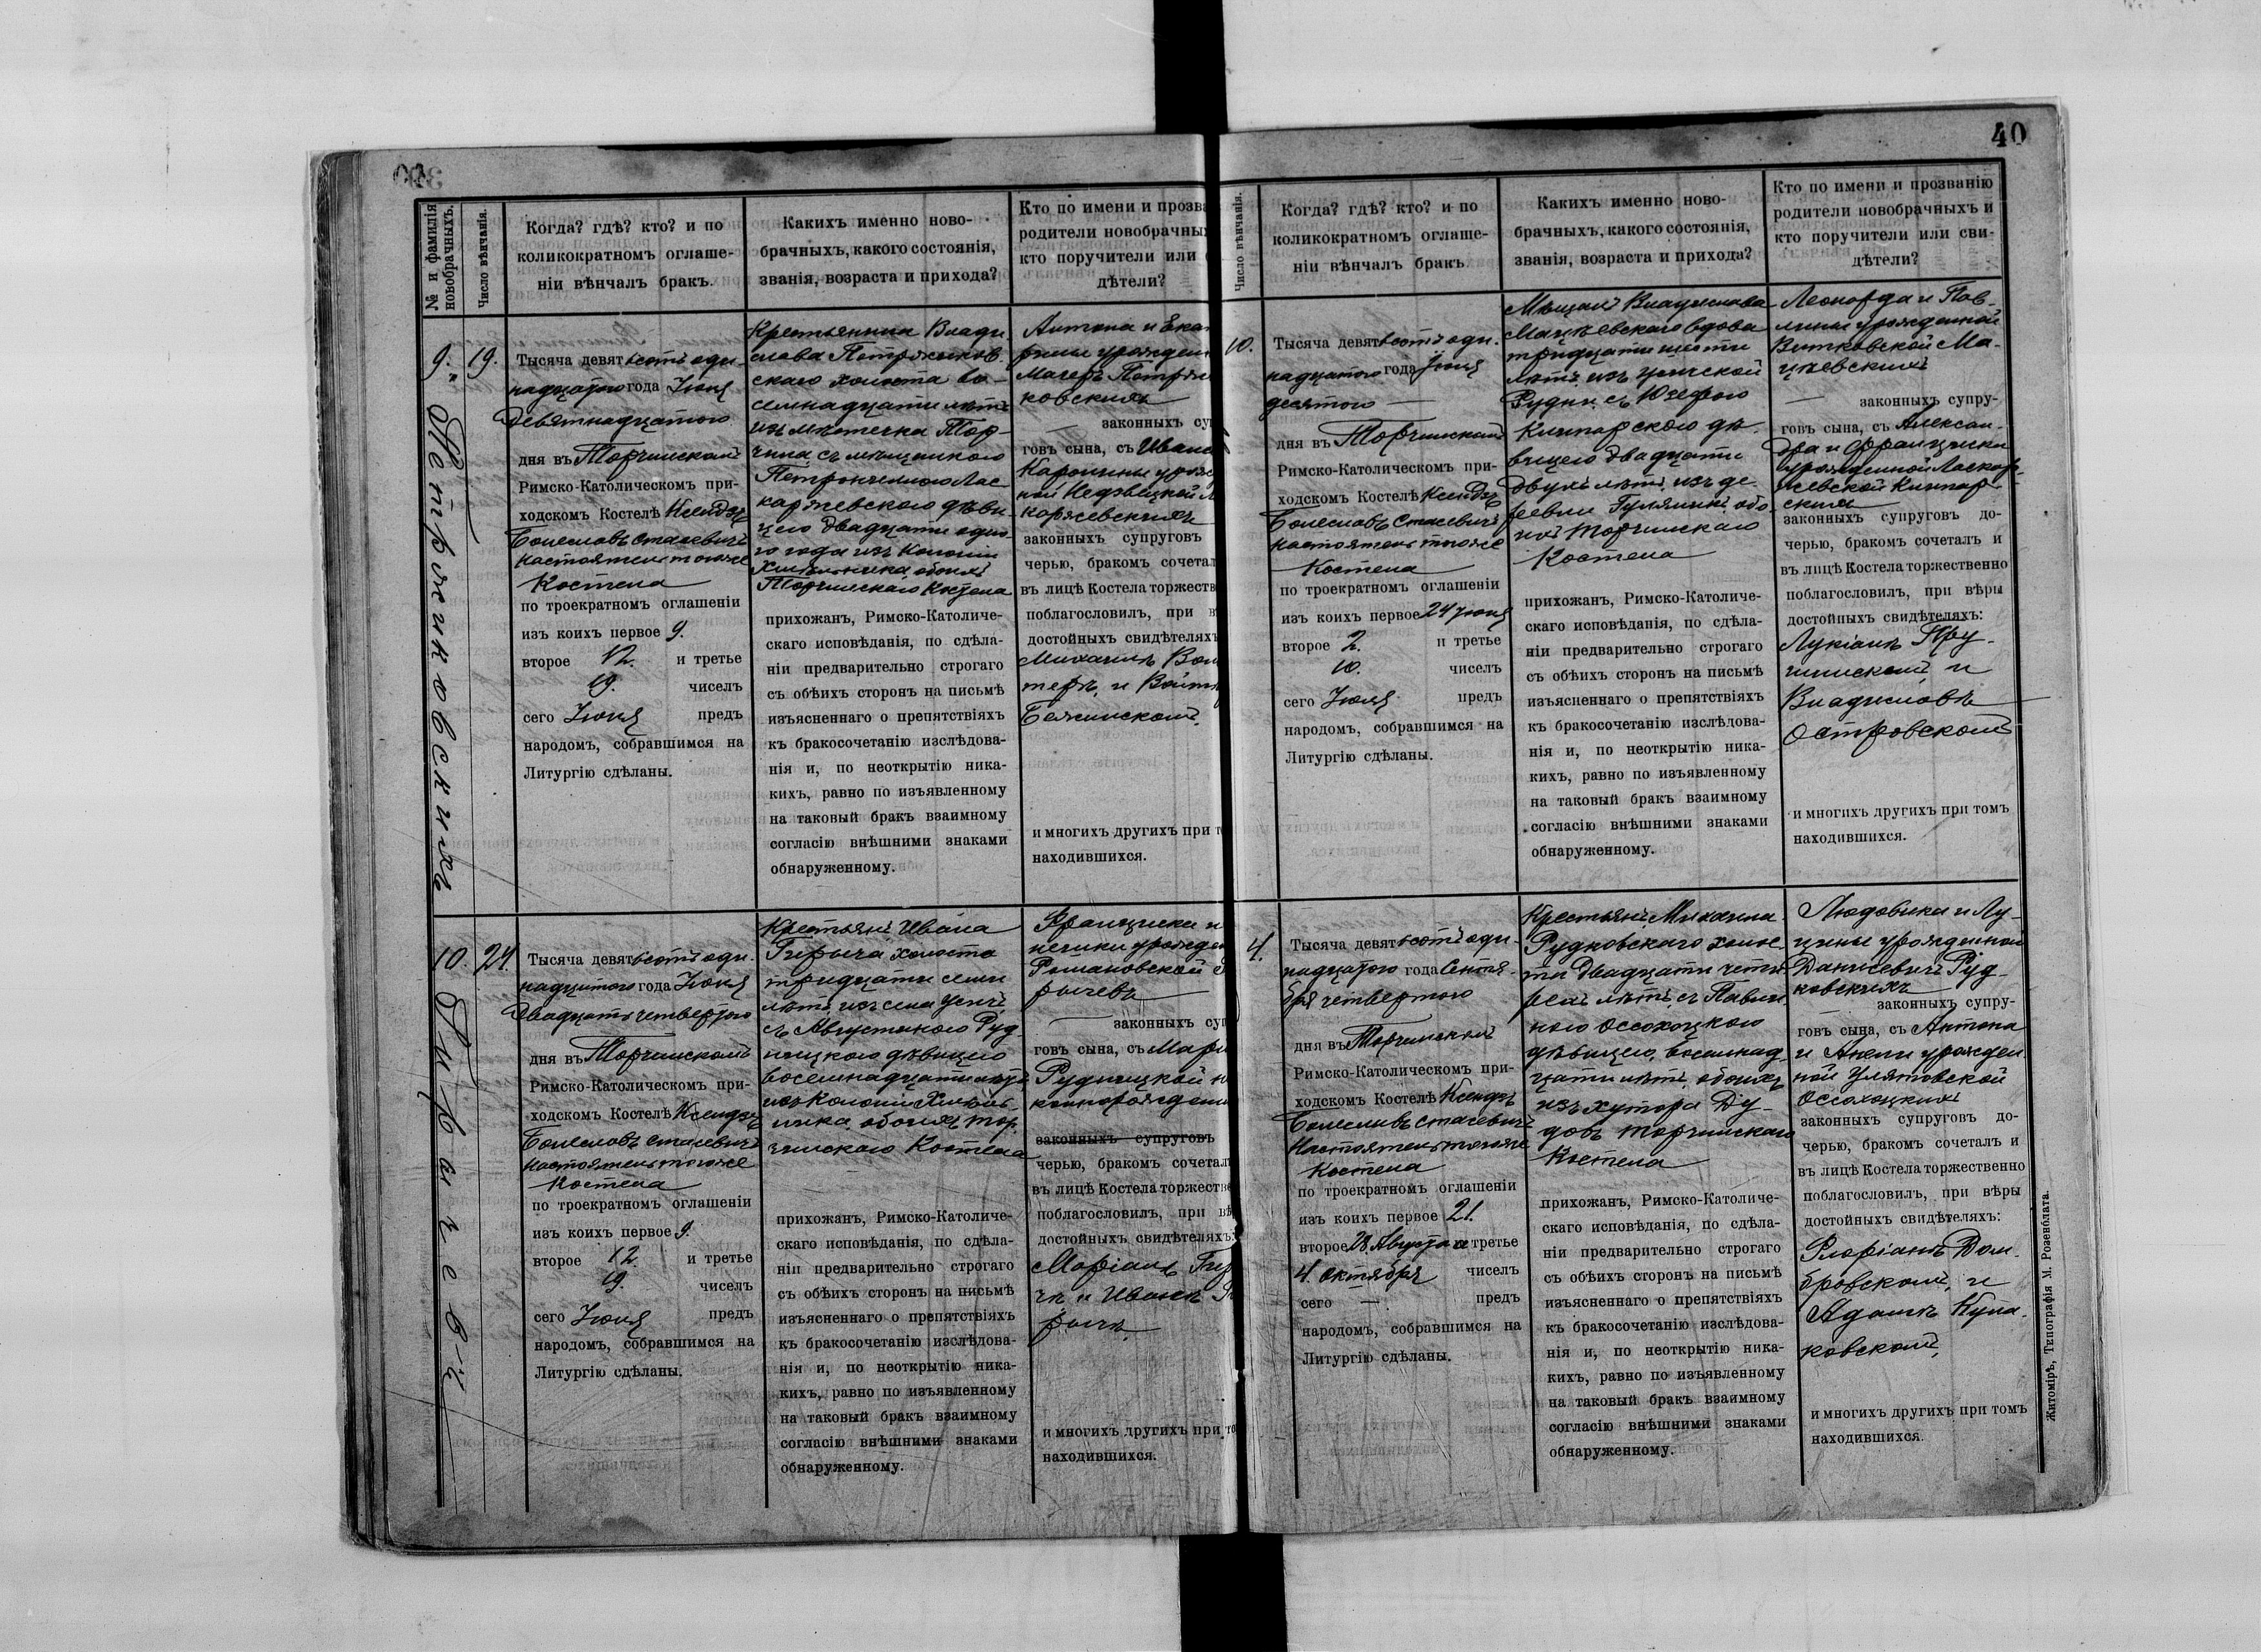 40
№ и фамилія новобрачныхъ.
Число вѣнчанія.
Когда? гдѣ? кто? и по
коликократномъ оглаше-
ніи вѣнчалъ бракъ.
Какихъ именно ново-
брачныхъ, какого состоянія,
званія, возраста и прихода?
Кто по имени и прозва
родители новобрачны
кто поручители или
дѣтели?
9.
Петржиковскихъ
19.
Тысяча девятьсотъ оди
надцатого года Іюня
Девятнадцатого
дня въ Торчинскомъ
Римско-Католическомъ при-
ходскомъ Костелѣ Ксендзъ
Болеславъ Стасевичъ
настоятель тогоже
Костела
по троекратномъ оглашеніи
изъ коихъ первое 9.
второе 12. и третье
19. чиселъ
сего Іюня предъ
народомъ, собравшимся на
Литургію сдѣланы.
Крестьянина Влади
слава Петржиков
скаго холоста во-
семнадцати лѣтъ
изъ мѣстечка Тор-
чина съ мѣщанкою
Петронелею Лас
каржевскою дѣви-
цею двадцати одно-
го года изъ колоніи
Хмѣльника обоихъ
Торчинскаго Костела
прихожанъ, Римско-Католиче-
скаго исповѣданія, по сдѣла-
ніи предварительно строгаго
съ обѣихъ сторонъ на письмѣ
изъясненнаго о препятствіяхъ
къ бракосочетанію изслѣдова-
нія и, по неоткрытію ника-
кихъ, равно по изъявленному
на таковый бракъ взаимному
согласію внѣшними знаками
обнаруженному.
Антона и Ека
рины урожден
Магеръ Петржи
ковскихъ
законныхъ су
говъ сына, съ Ивана
Каролины урож
ной Недзвецкой Л
каржевскихъ
законныхъ супруговъ
черью, бракомъ сочетал
въ лицѣ Костела торжеств
поблагословилъ, при в
достойныхъ свидѣтеляхъ
Михаилъ Вол
теръ, и Войт
Бежинскомъ,
и многихъ другихъ при т
находившихся.
10.
Гирычевъ
24.
Тысяча девятьсотъ оди
надцатого года Іюня
Двадцать четвертого
дня въ Торчинскомъ
Римско-Католическомъ при-
ходскомъ Костелѣ Ксендзъ
Болеславъ Стасевичъ
настоятель тогоже
Костела
по троекратномъ оглашеніи
изъ коихъ первое 9.
второе 12. и третье
19. чиселъ
сего Іюня предъ
народомъ, собравшимся на
Литургію сдѣланы.
Крестьянъ Ивана
Гирыча холоста
тридцати семи
лѣтъ изъ села
съ Августиною Руд
ницкою дѣвицею
восемнадцати лѣтъ
изъ Колоніи Хмѣль-
ника, обоихъ тор.
чинскаго Костела
прихожанъ, Римско-Католиче-
скаго исповѣданія, по сдѣла-
ніи предварительно строгаго
съ обѣихъ сторонъ на письмѣ
изъясненнаго о препятствіяхъ
къ бракосочетанію изслѣдова-
нія и, по неоткрытію ника-
кихъ, равно по изъявленному
на таковый бракъ взаимному
согласію внѣшними знаками
обнаруженному.
Франциска и
урожден
Романовской Г
рычевъ
законныхъ суп
говъ сына, съ Мари
Рудницкой
законныхъ супруговъ
черью, бракомъ сочетал
въ лицѣ Костела торжестве
поблагословилъ, при вѣ
достойныхъ свидѣтеляхъ:
Маріанъ Гир
чъ и Иванъ Г
рычъ,
и многихъ другихъ при то
находившихся.
Число вѣнчанія.
Когда? гдѣ? кто? и по
коликократномъ оглаше-
ніи вѣнчалъ бракъ
Какихъ именно ново-
брачныхъ, какого состоянія,
званія, возраста и прихода?
Кто по имени и прозванію
родители новобрачныхъ и
кто поручители или сви-
дѣтели?
10.
Тысяча девятьсотъ оди.
надцатого года Іюля
десятого
дня въ Торчинскомъ
Римско-Католическомъ при-
ходскомъ Костелѣ Ксендзъ
Болеславъ Стасевичъ
настоятель тогоже
Костела
по троекратномъ оглашеніи
изъ коихъ первое 24 Іюня
второе 2. и третье
10. чиселъ
сего Іюля предъ
народомъ, собравшимся на
Литургію сдѣланы.
Мѣщанъ Владислава
Мацѣевскаго вдова
тридцати шести
лѣтъ изъ
Рудни съ Юзефою
Клипарскою дѣ-
вицею двадцати
двухъ лѣтъ, изъ де
ревни Гулянки, обо
ихъ Торчинскаго
Костела
прихожанъ, Римско-Католиче-
скаго исповѣданія, по сдѣла-
ніи предварительно строгаго
съ обѣихъ сторонъ на письмѣ
изъясненнаго о препятствіяхъ
къ бракосочетанію изслѣдова-
нія и, по неоткрытію ника-
кихъ, равно по изъявленному
на таковый бракъ взаимному
согласію внѣшними знаками
обнаруженному.
Леонарда и Пав-
лины урожденной
Витковской Ма-
цѣевскихъ
законныхъ супру-
говъ сына, съ Алексан-
дра и Францишки
урожденной Ласкар-
жевской Клипар-
скихъ
законныхъ супруговъ до-
черью, бракомъ сочеталъ и
въ лицѣ Костела торжественно
поблагословилъ, при вѣры
достойныхъ свидѣтеляхъ:
Лукіанъ
и
Владиславъ
Островскомъ
и многихъ другихъ при томъ
находившихся.
4.
Тысяча девятьсотъ оди-
надцатого года Сентя-
бря четвертого
дня въ Торчинскомъ
Римско-Католическомъ при-
ходскомъ Костелѣ Ксендзъ
Болеславъ Стасевичъ
Настоятель тогоже
Костела
по троекратномъ оглашеніи
изъ коихъ первое 21.
второе 28 Августа и третье
4. октября чиселъ
сего — предъ
народомъ, собравшимся на
Литургію сдѣланы.
Крестьянъ Михаила
Рудковскаго холос-
та двадцати четы
рехъ лѣтъ, съ Павли
ною Оссохоцкою
дѣвицею, восемнад
цати лѣтъ, обоихъ
изъ хутора Ду-
бовъ торчинскаго
Костела
прихожанъ, Римско-Католиче-
скаго исповѣданія, по сдѣла-
ніи предварительно строгаго
съ обѣихъ сторонъ на письмѣ
изъясненнаго о препятствіяхъ
къ бракосочетанію изслѣдова-
нія и, по неоткрытію ника-
кихъ, равно по изъявленному
на таковый бракъ взаимному
согласію внѣшними знаками
обнаруженному.
Людовика и Лу-
цины урожденной
Данилевичъ Руд-
ковскихъ
законныхъ супру-
говъ сына, съ Антона
и Анели урожден
ной Улятовской
Оссохоцкихъ
законныхъ супруговъ до-
черью, бракомъ сочеталъ и
въ лицѣ Костела торжественно
поблагословилъ, при вѣры
достойныхъ свидѣтеляхъ:
Флоріанъ Дом-
бровскомъ, и
Адамъ Кула-
ковскомъ,
и многихъ другихъ при томъ
находившихся.
Житоміръ, Типографія М. Розенблата.